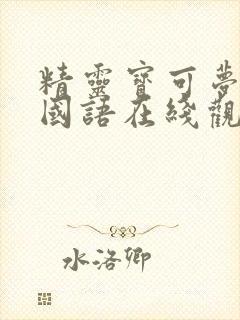 精靈寶可夢
國語在綫觀
水洛卿